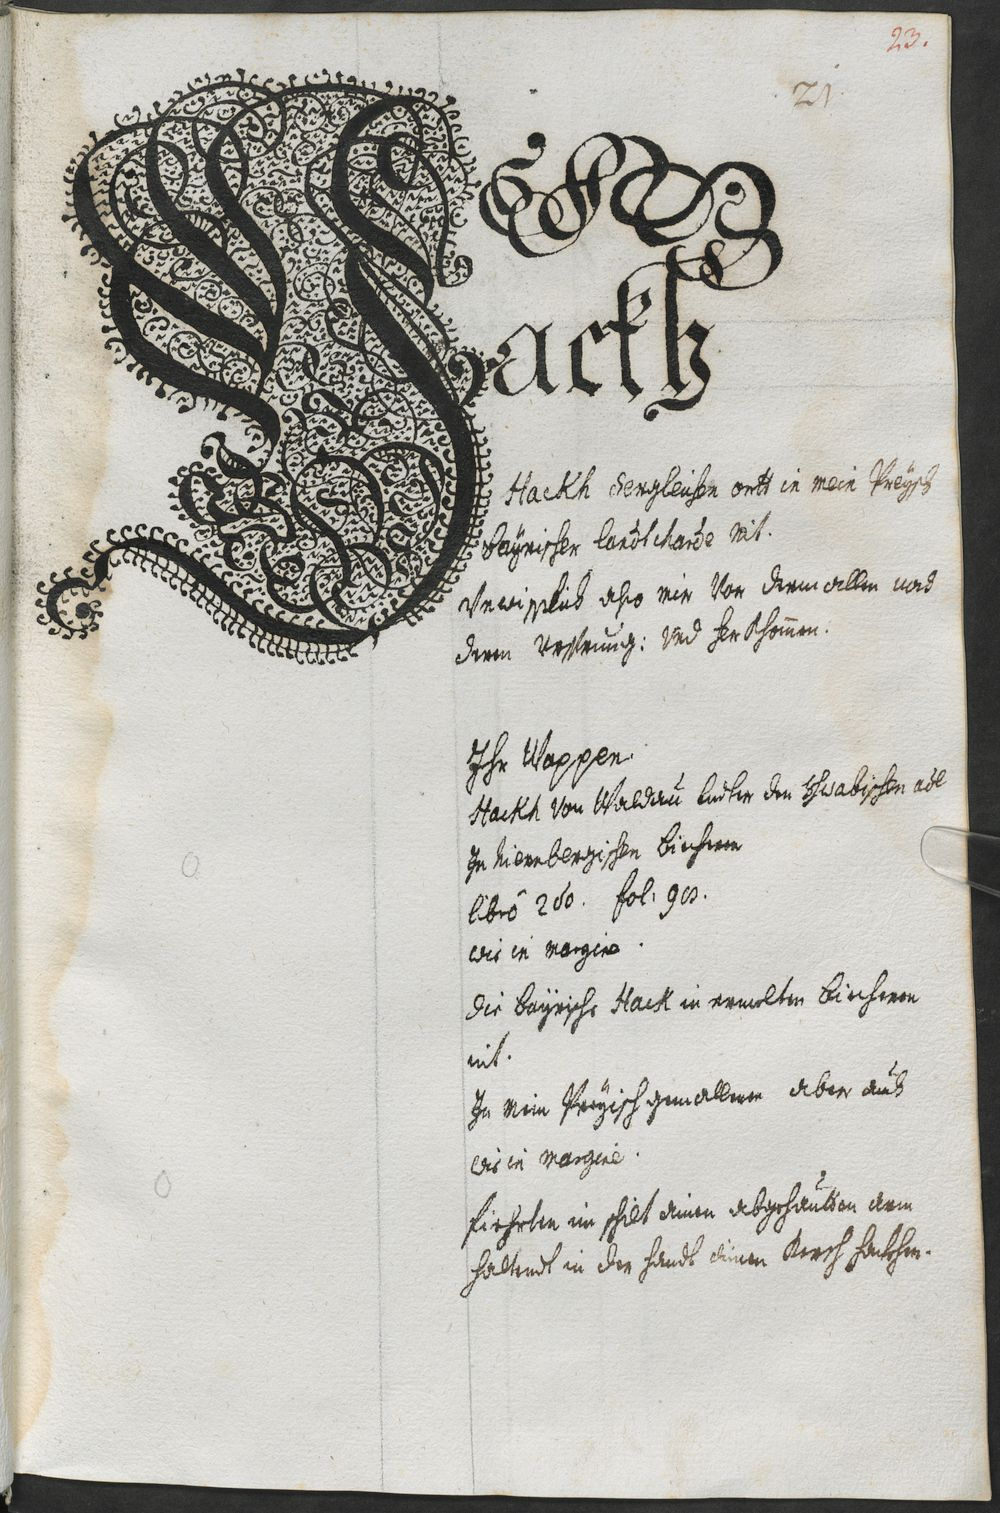 23.
21.
Hackh
Hackh dergleichen ortt in mein Preyss
bayrischer landtcharde nit.
Vnwissent also mir Von dem allen und
deren Vrsprung: Vnd herkhomen.
Ihr Wappen.
Hackh Von Waldau under den schwabischen adl
In Niernbergischen biechern
libro 2do. fol: 90.
wie in margine.
die bayrische Hack in ermelten biechern
nit.
In mein Preyisch gemallenen aber auch
wie in margine.
fiehrten im schilt ainen abgehautten arm
haltendt in der handt ainen